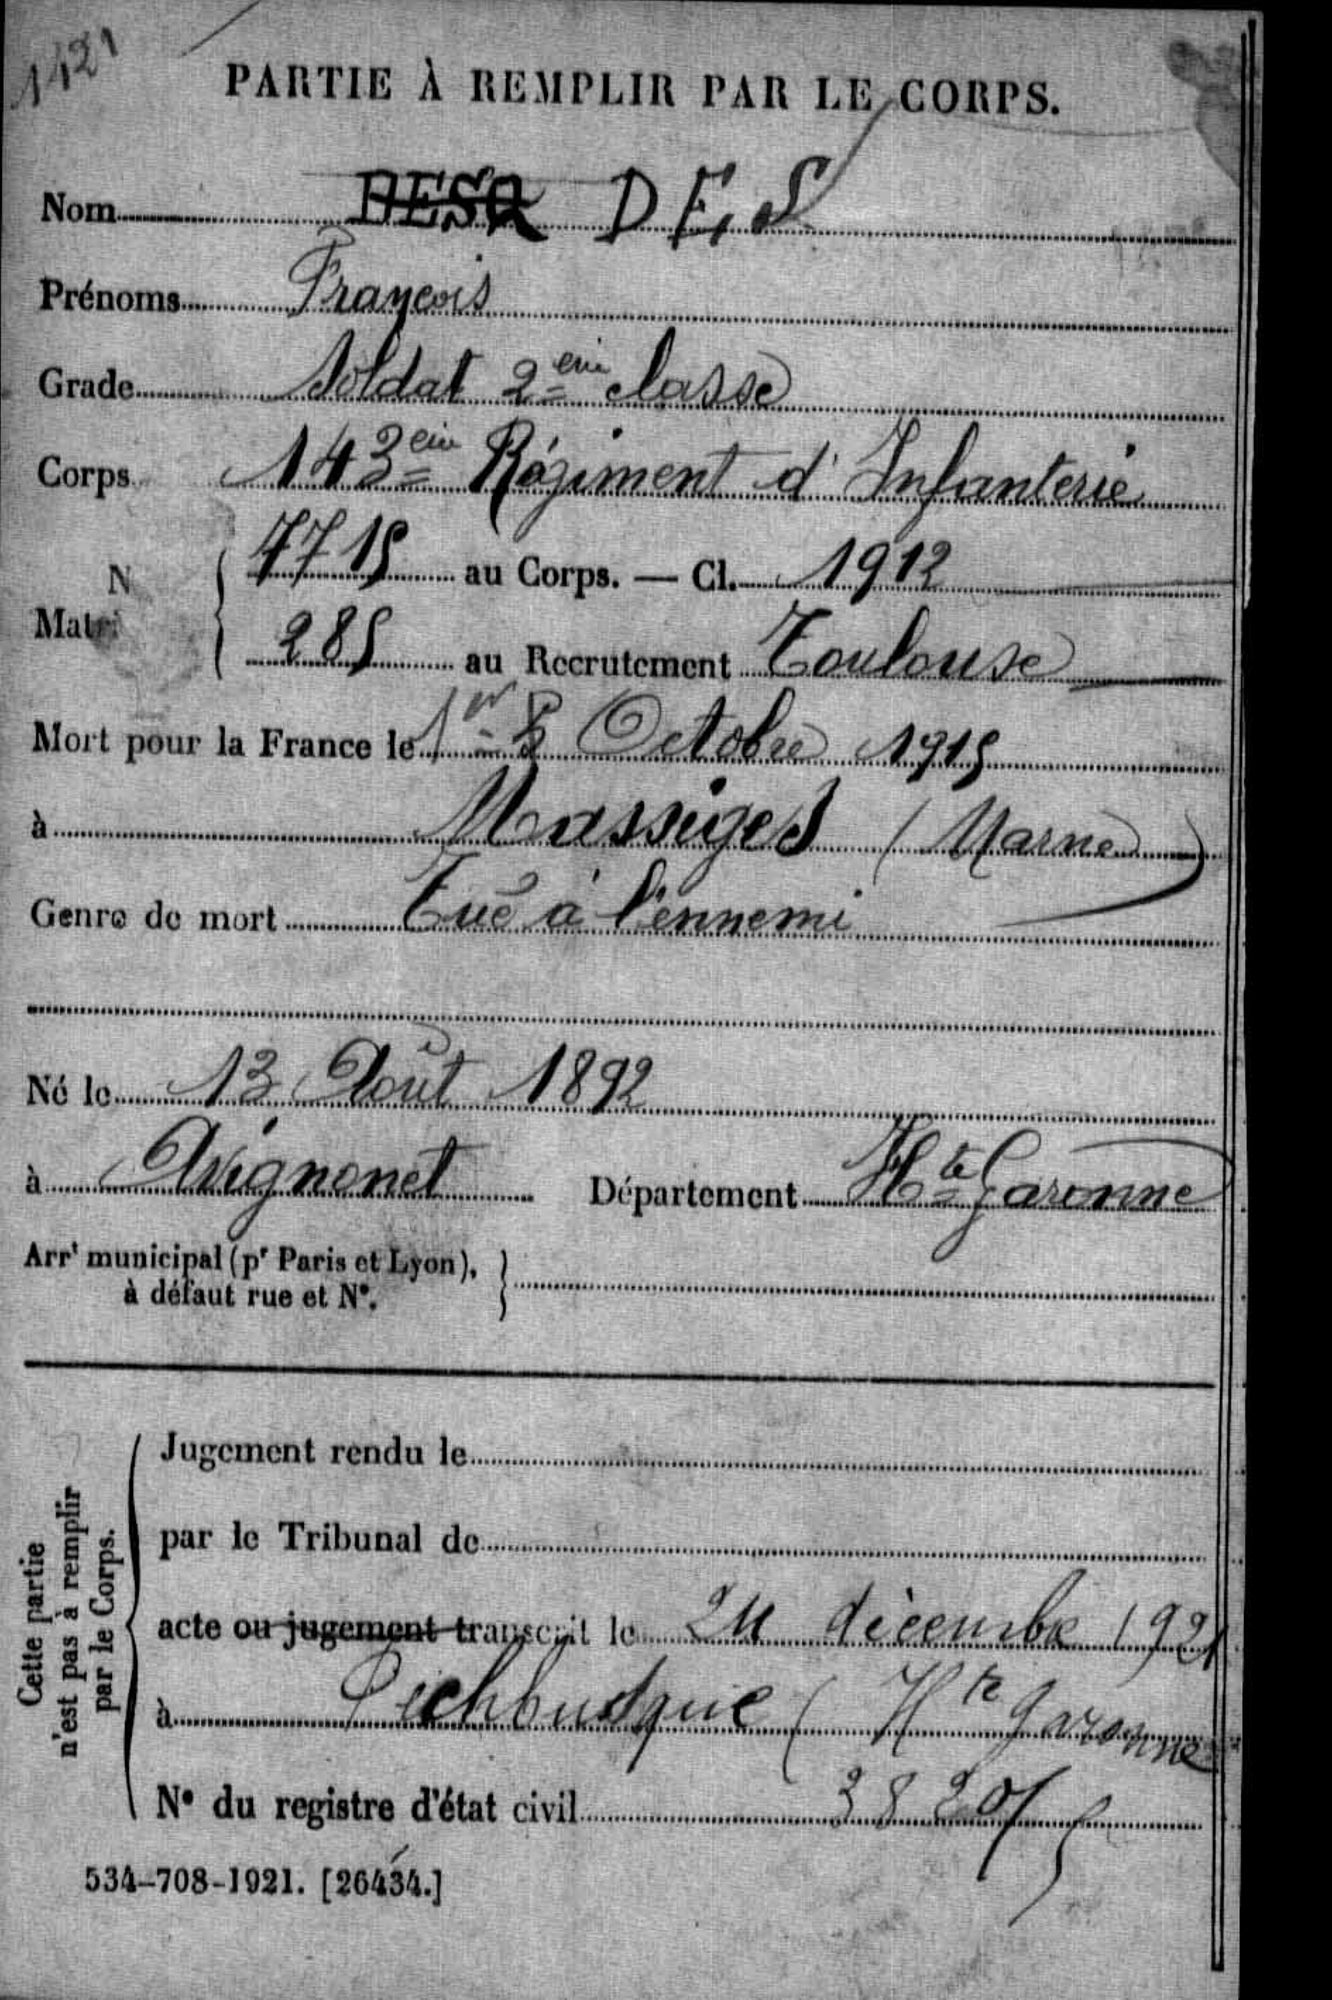 1421
PARTIE À REMPLIR PAR LE CORPS.
Nom DESQ DES
Prénoms François
Grade Soldat 2ème classe
Corps 143ème Régiment d'Infanterie
N 7715 au Corps. — Cl. 1912
Matri 285 au Recrutement Toulouse
Mort pour la France le 1er Octobre 1915
à Massiges (Marne)
Genre de mort Tué à l'ennemi
Né le 13 Août 1892
à Avignonet Département Hte Garonne
Arrt municipal (pr Paris et Lyon),
à défaut rue et N°.
Cette partie
n'est pas à remplir
par le Corps.
Jugement rendu le
par le Tribunal de
acte ou jugement transcrit le 24 décembre 1921
à Pechbusque (Hte Garonne
N° du registre d'état civil
534-708-1921. [26434.]